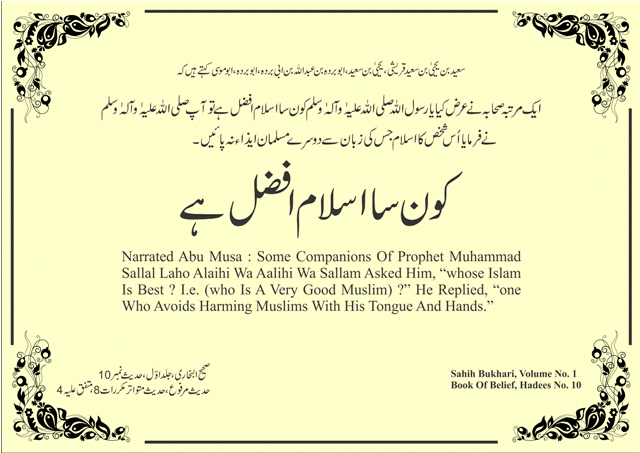 سعید بن یحییٰ بن سعید قریشی، یحییٰ بن سعید، ابو بردہ بن عبداللہ بن ابی بردہ، ابو بردہ، ابو موسی کہتے ہیں کہ
ایک مرتبہ صحابہ نے عرض کیا یا رسول اللہ صلی اللہ علیہ وآلہ وسلم کون سا اسلام افضل ہے تو آپ صلی اللہ علیہ وآلہ وسلم
نے فرمایا اُس شخص کا اسلام جس کی زبان سے دوسرے مسلمان ایذاء نہ پائیں۔
کون سا اسلام افضل ہے
Narrated Abu Musa : Some Companions Of Prophet Muhammad
Sallal Laho Alaihi Wa Aalihi Wa Sallam Asked Him, “whose Islam
Is Best ? I.e. (who Is A Very Good Muslim) ?” He Replied, “one
Who Avoids Harming Muslims With His Tongue And Hands.”
صحیح البخاری، جلد اوّل، حدیث نمبر 10
حدیث مرفوع، حدیث متواتر مکررات 8، متفق علیہ 4
Sahih Bukhari, Volume No. 1
Book Of Belief, Hadees No. 10